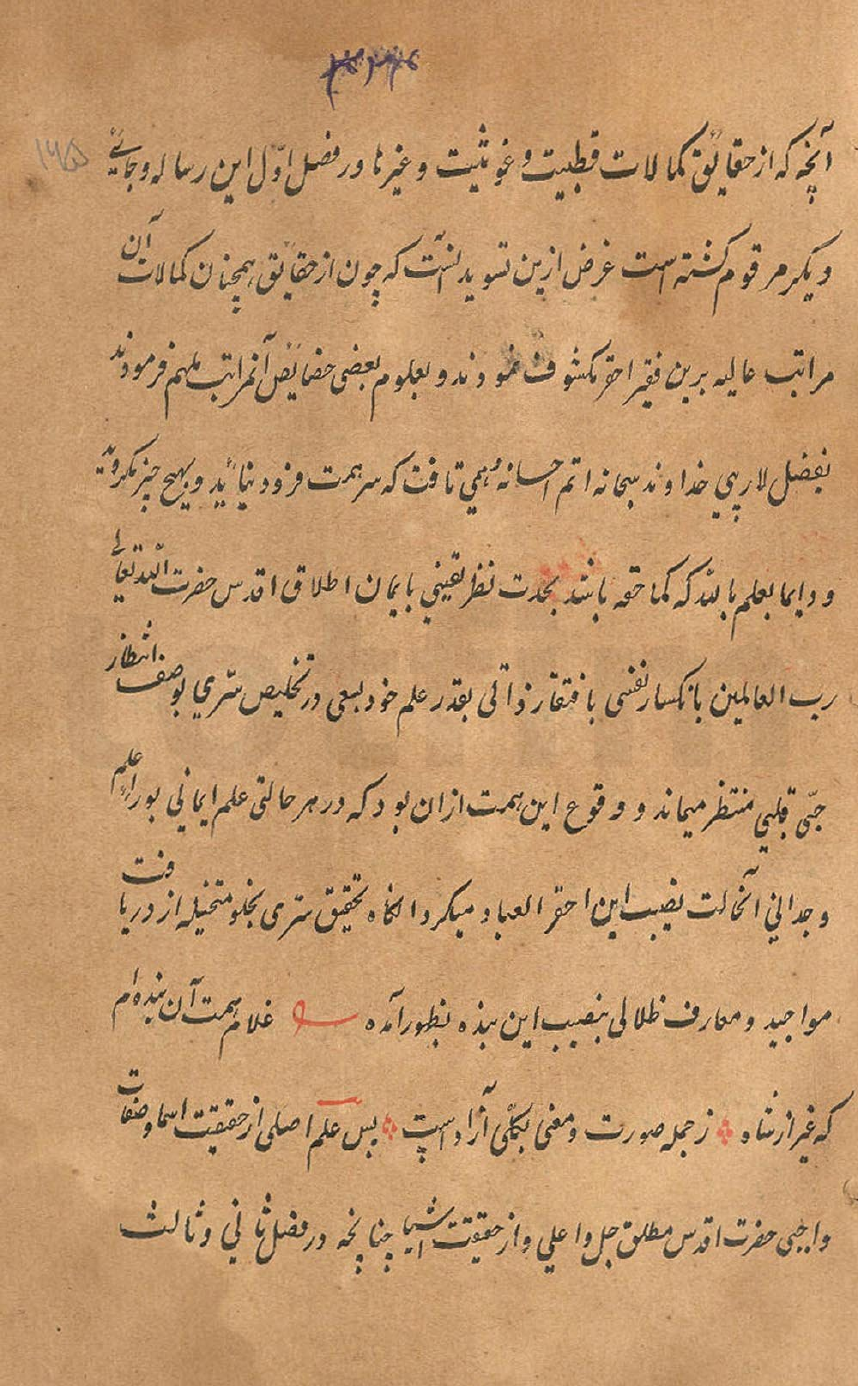 ۱۶۵
آنچه که از حقایق کمالات قطبیت و غوثیت و غیرها در فصل اوّل این رساله و جائے
دیکر مرقوم کشته است غرض ازین تسوید آنست که چون از حقایق همچنان کمالات آن
مراتب عالیه برین فقیر احقر مکشوف نمودند و بعلوم بعضی خصایص آنمراتب ملهم فرمودند
بفضل لاریبی خداوند سبحانه اتم احسانه همی تافت که سر همت فرود نیاید و بهیچ چیز نکروید
و دایما بعلم بالله که کما حقه باشد بحدت نظر یقینی بایمان اطلاق اقدس حضرت الله تعالی
رب العالمین بانکسار نفسی بافتقار ذاتی بقدر علم خود بسعی در تخلیص سّری بوصف انتظار
حبّی قلبی منتظر میماند و وقوع این همت ازان بود که در هر حالتی علم ایمانی بوراء علم
وجدانی آنحالت نصیب این احقر العباد میکرد انکاه تحقیق سّری بخلو متخیله از دریافت
مواجید و معارف ظلالی بنصیب این بنده بظهور آمده غلام همت آن بنده ام
که غیر از شاه ز جمله صورت و معنی بکلّی آزاد است پس علم اصلی از حقیقت اسما و صفات
واجبی حضرت اقدس مطلق جل و اعلی و از حقیقت اشیا چنانچه در فصل ثانی و ثالث